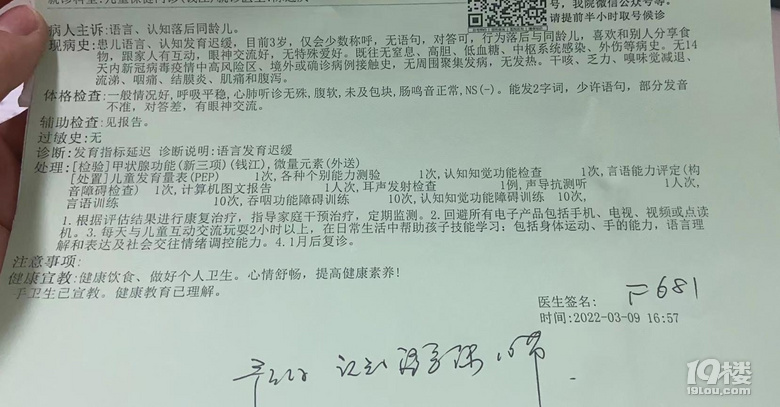 号，我院微信公众号等。
请提前半小时取号候诊
病人主诉:语言、认知落后同龄儿。
现病史:患儿语言、认知发育迟缓，目前3岁，仅会少数称呼，无语句，对答可，行为落后与同龄儿，喜欢和别人分享食
物，跟家人有互动，眼神交流好，无特殊爱好。既往无窒息、高胆、低血糖、中枢系统感染、外伤等病史。无14
天内新冠病毒疫情中高风险区、境外或确诊病例接触史，无周围聚集发病，无发热。干咳、乏力、嗅味觉减退、
流涕、咽痛、结膜炎、肌痛和腹泻。
体格检查:一般情况好,呼吸平稳,心肺听诊无殊,腹软,未及包块,肠鸣音正常,NS(-)。能发2字词，少许语句，部分发音
不准，对答差,有眼神交流。
辅助检查:见报告。
过敏史:无
诊断:发育指标延迟 诊断说明:语言发育迟缓
处理:[检验]甲状腺功能(新三项)(钱江),微量元素(外送)
[处置]儿童发育量表(PEP) 1次,各种个别能力测验 1次,认知知觉功能检查 1次,言语能力评定(构
音障碍检查) 1次,计算机图文报告 1人次,耳声发射检查 1例,声导抗测听 1人次,
言语训练 10次,吞咽功能障碍训练 10次,认知知觉功能障碍训练 10次,
1.根据评估结果进行康复治疗，指导家庭干预治疗，定期监测。2.回避所有电子产品包括手机、电视、视频或点读
机。3.每天与儿童互动交流玩耍2小时以上，在日常生活中帮助孩子技能学习:包括身体运动、手的能力，语言理
解和表达及社会交往情绪调控能力。4.1月后复诊。
注意事项:
健康宣教:健康饮食、做好个人卫生。心情舒畅，提高健康素养!
手卫生已宣教。健康教育已理解。
医生签名:
681
时间:2022-03-09 16:57
19楼
19lou.com